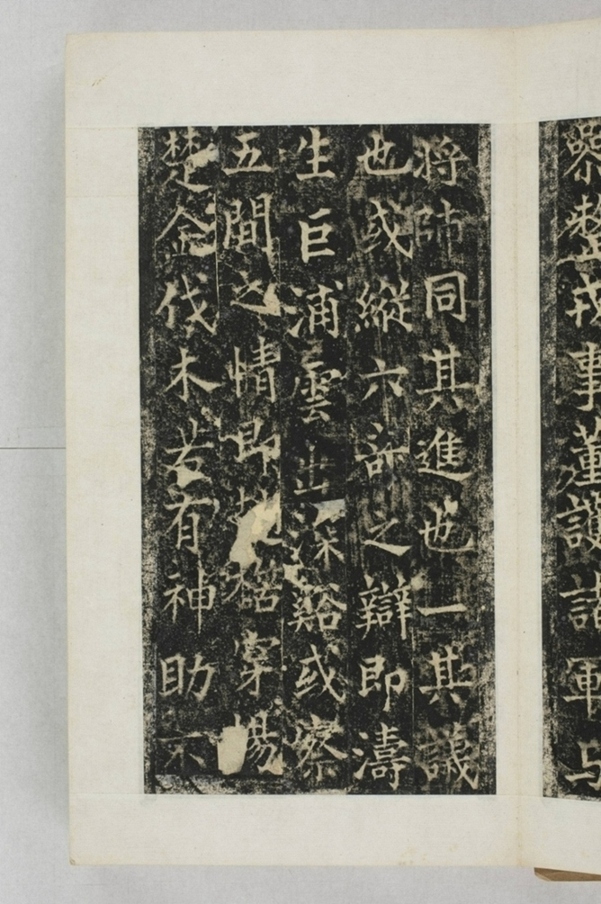 整戎事董護諸軍与
將帥同其進也一其議
也或縱六奇之辯即濤
生巨浦雲出深谿或察
五間之情即穿楊
楚金伐木若有神助不